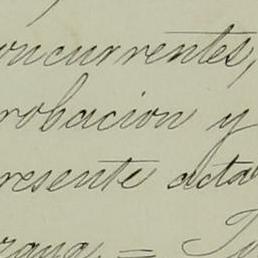 oncurrentes,
robacion y
resente acta